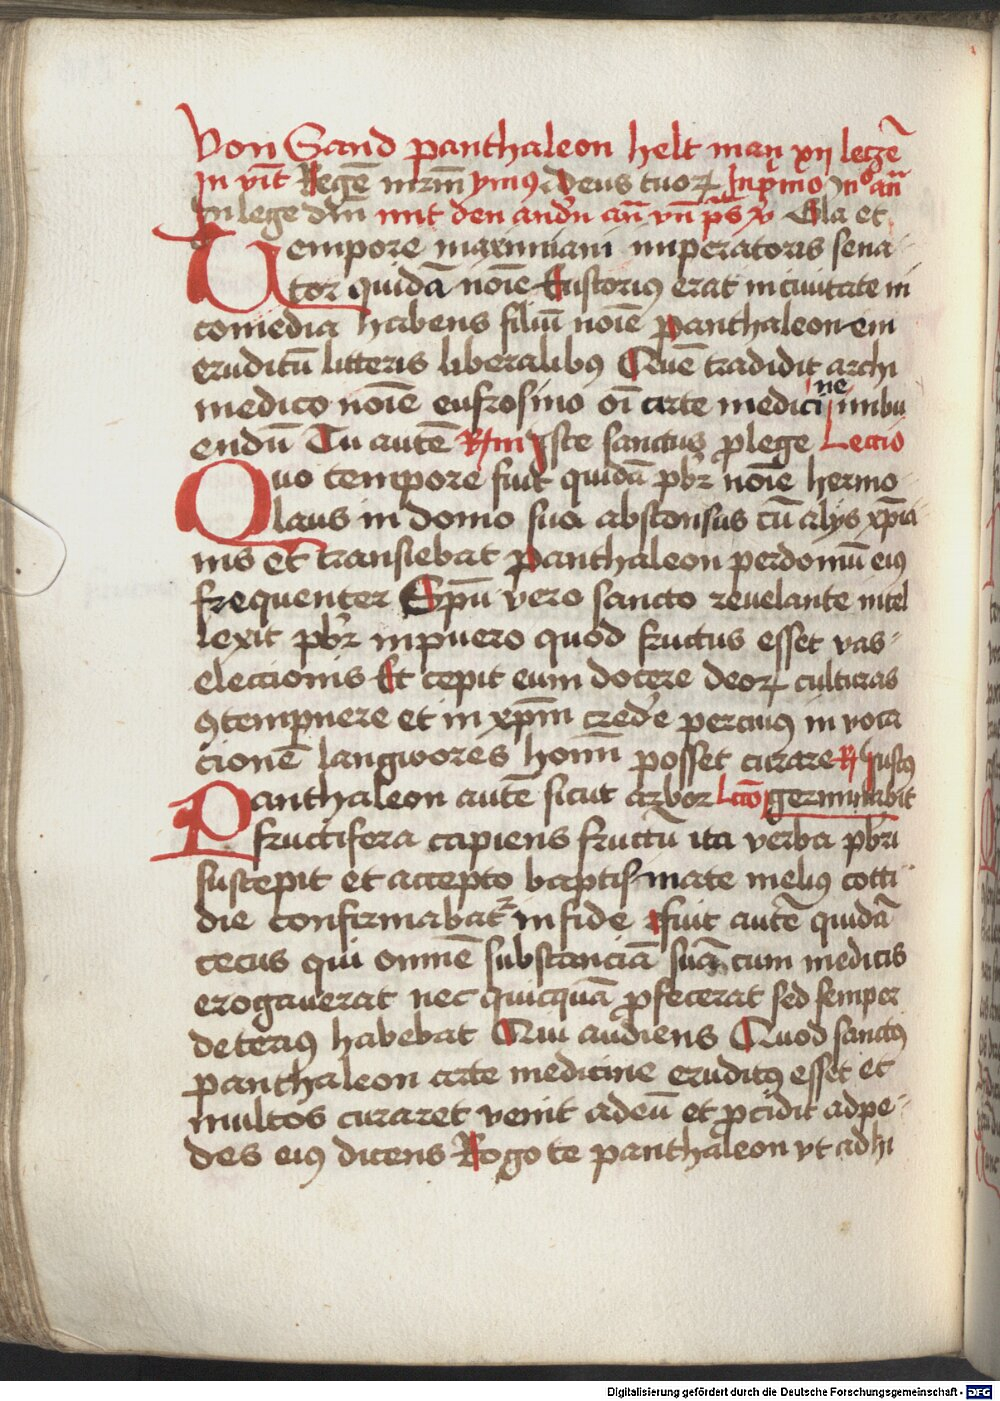 Von Sand panthaleon helt man xij letzē
In vit̄ Regē mr̄m ymnꝰ deus tuoꝝ In pͥmo nͦ an̄
In lege dn̄i mit den andn̄ an̄ vn̄ p̄s v̄ Ela et
Tempore maximiani imperatoris sena-
tor quidā noīe Eustoriꝰ erat in ciuitate ni
comedia habens filiū noīe panthaleonem
eruditū litteris liberalibꝰ Quē tradidit archi
medico noīe eufrosino oī arte medicine imbu
endū Tu autē ℟ Iste sanctus ꝓ lege Lectio
Quo tempore fuit quidā pb̄r noīe hermo
laus in domo sua absconsus cū alijs xp̄ia
nis et transiebat panthaleon per domū eiꝰ
frequenter Spū vero sancto reuelante intel
lexit pb̄r in puero quod fructus esset vas-
eleccionis Et cepit eum docere deoꝝ culturas
ꝯtempnere et in xp̄m crede percuiꝰ in voca
cionē langwores hom̄ posset curare ℟ Iustꝰ
Panthaleon autē sicut arbor Lc̄co germinabit
fructifera capiens fructū ita verba pb̄ri
suscepit et accepto baptismate meliꝰ cotti
die confirmabatr in fide fuit autē quidā
cecus qui omnē substanciā suā cum medicis
erogauerat nec quicquā ꝓfecerat sed semper
deteriꝰ habebat Qui audiens Quod sanctꝰ
panthaleon arte medicine eruditꝰ esset et
multos curaret venit ad eū et ꝓcidit ad pe-
des eiꝰ dicens Rogo te panthaleon vt adhi
Digitalisierung gefördert durch die Deutsche Forschungsgemeinschaft - DFG